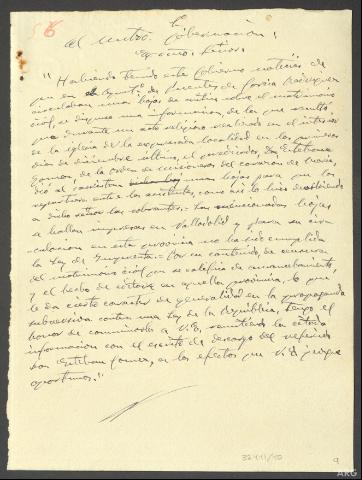 56
Al Ministro Gobernación:
Excmo. Señor:
"Habiendo tenido este Gobierno noticias de
que en Puentes de García Rodríguez
circulaban unas hojas de crítica sobre el matrimonio
civil, se dispuso una información, de la que resultó
que durante un acto religioso celebrado en el interior
de la iglesia de la expresada localidad en los primeros
días de diciembre último, el predicador, Don Esteban
Gómez, de la orden de misioneros del corazón de María
dió al sacristán unas hojas para que las
repartiera entre los asistentes, como así lo hizo devolviendo
a dicho señor las sobrantes.= Las mencionadas hojas
se hallan impresas en Valladolid y para su cir-
culación en esta provincia no ha sido cumplida
la Ley de Imprenta.= Por su contenido, de censura
del matrimonio civil que se califica de amancebamiento
y el hecho de editarse en aquella provincia, lo que
le da cierto carácter de generalidad en la propaganda
subversiva contra una Ley de la República, tengo el
honor de comunicarlo a V.E., remitiendo la citada
información con el escrito de descargo del referido
don Esteban Gómez, a los efectos que V.E. juzgue
oportunos."
32411/10
9
ARG